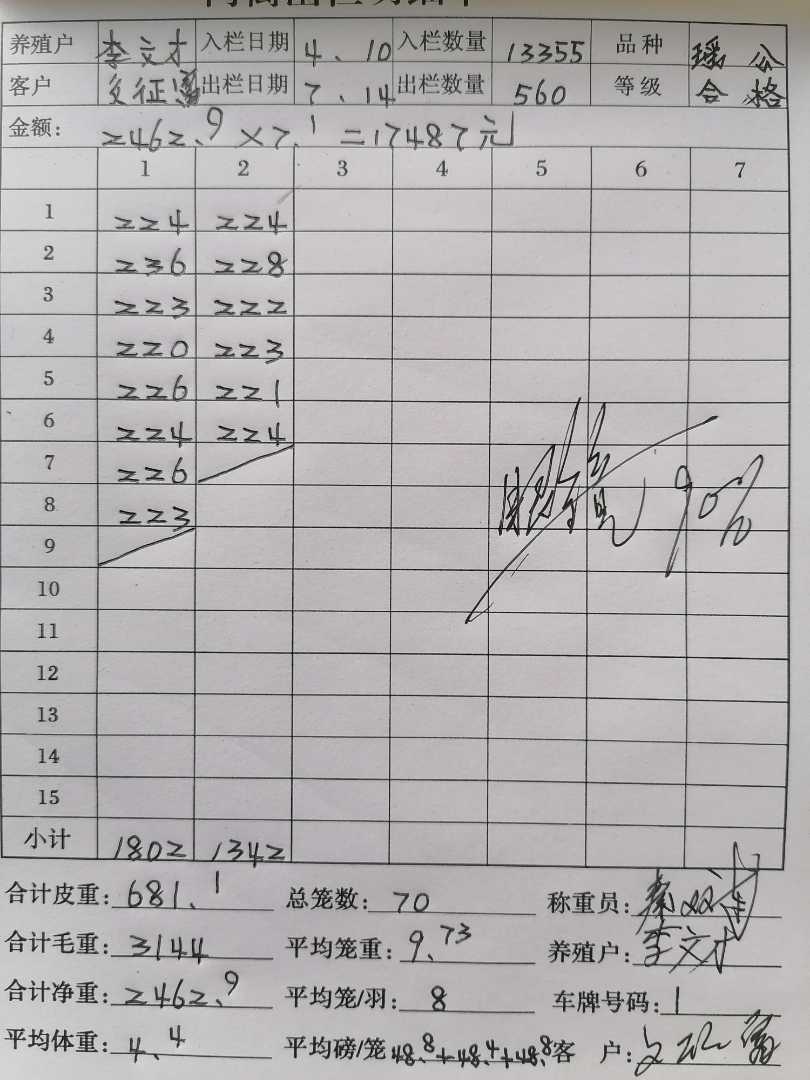 养殖户 李文才 入栏日期 4.10 入栏数量 13355 品种 瑶公
客户 征 出栏日期 7.14 出栏数量 560 等级 合格
金额: 2462.9×7.1=17487元
1 2 3 4 5 6 7
1 224 224
2 236 228
3 223 222
4 220 223
5 226 221
6 224 224
7 226
8 223
9
90%
10
11
12
13
14
15
小计 1802 1342
合计皮重: 681.1 总笼数: 70 称重员: 秦
合计毛重: 3144 平均笼重: 9.73 养殖户: 李文才
合计净重: 2462.9 平均笼/羽: 8 车牌号码: 1
平均体重: 4.4 平均磅/笼 48.8+48.4+48.8 客户: